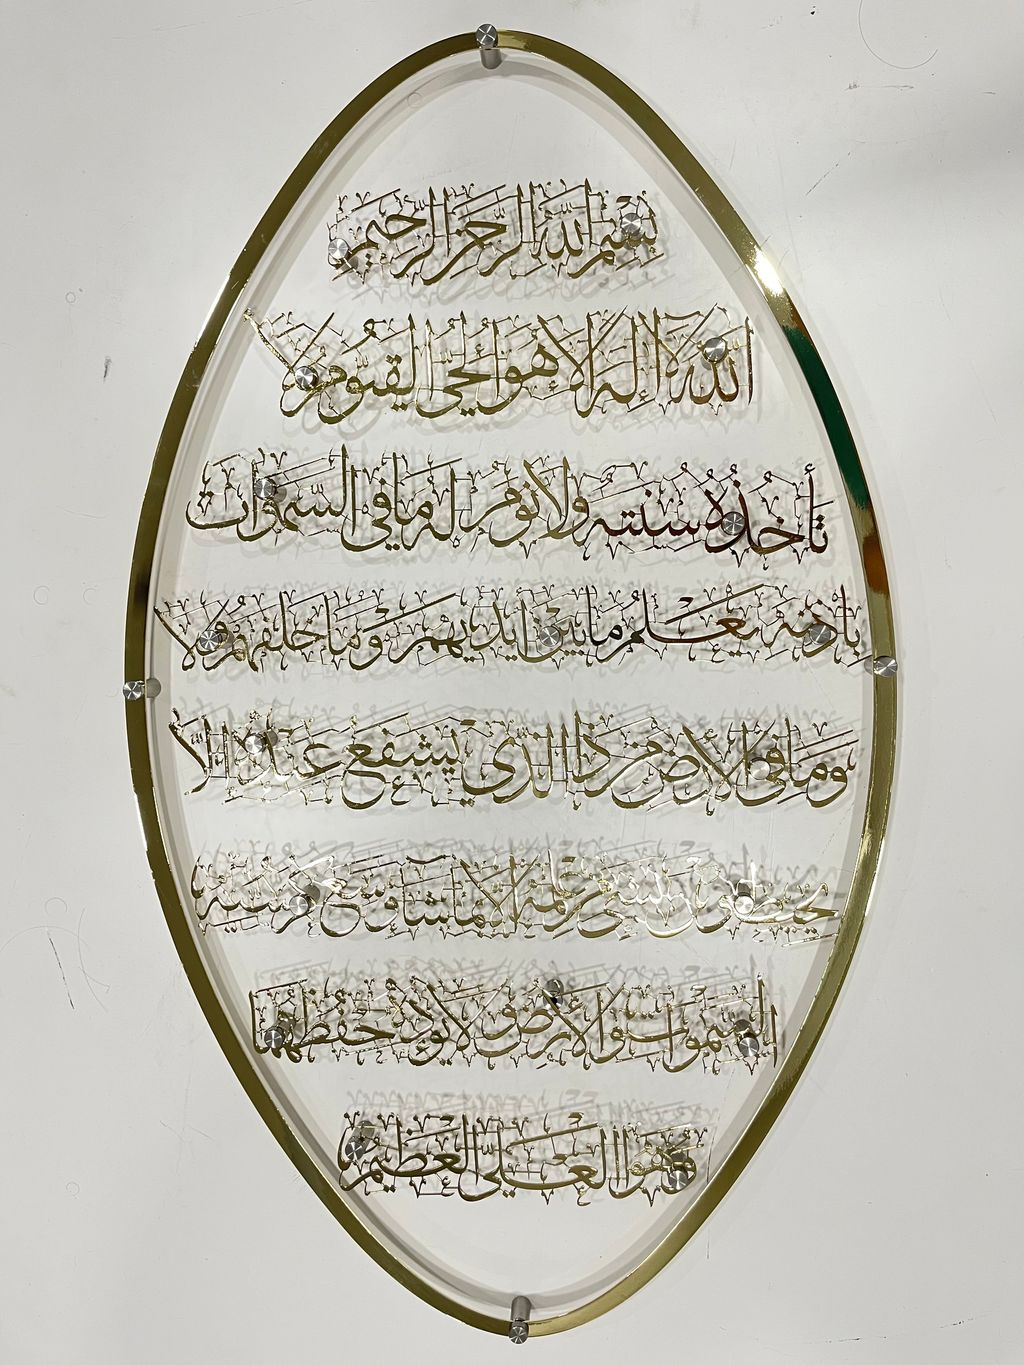 بِسْمِ اللَّهِ الرَّحْمَنِ الرَّحِيمِ
اللَّهُ لَا إِلَهَ إِلَّا هُوَ الْحَيُّ الْقَيُّومُ لَا
تَأْخُذُهُ سِنَتُهُ وَلَا نَوْمٌ لَهُ مَا فِي السَّمَوَاتِ
بِإِذْنِهِ يَعْلَمُ مَا بَيْنَ أَيْدِيهِمْ وَمَا خَلْفَهُمْ وَلَا
وَمَا فِي الْأَرْضِ مَنْ ذَا الَّذِي يَشْفَعُ عِنْدَهُ إِلَّا
يُحِيطُونَ بِشَيْءٍ مِنْ عِلْمِهِ إِلَّا بِمَا شَاءَ وَسِعَ كُرْسِيُّهُ
السَّمَوَاتِ وَالْأَرْضَ وَلَا يَؤُدُهُ حِفْظُهُمَا
وَهُوَ الْعَلِيُّ الْعَظِيمُ